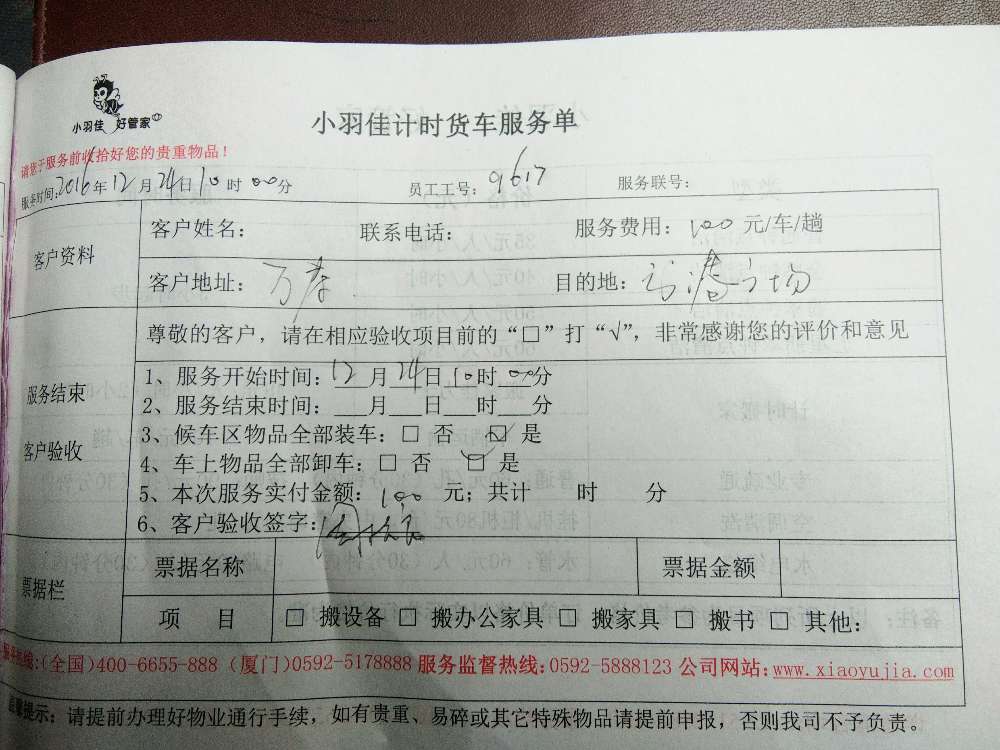 小羽佳 好管家
小羽佳计时货车服务单
请您于服务前收拾好您的贵重物品！
服务时间:2016年12月24日10时00分 员工工号: 9617 服务联号:
客户资料
客户姓名: 联系电话: 服务费用: 100 元/车/趟
客户地址: 万 目的地: 广场
服务结束
客户验收
尊敬的客户，请在相应验收项目前的“□”打“√”，非常感谢您的评价和意见
1、服务开始时间:12月24日10时00分
2、服务结束时间:___月___日___时___分
3、候车区物品全部装车:□ 否 ☑ 是
4、车上物品全部卸车:□ 否 ☑ 是
5、本次服务实付金额: 100 元；共计 时 分
6、客户验收签字:
票据栏
票据名称 票据金额
项 目 □ 搬设备 □ 搬办公家具 □ 搬家具 □ 搬书 □ 其他:
热线:(全国)400-6655-888 (厦门)0592-5178888 服务监督热线:0592-5888123 公司网站:www.xiaoyujia.com
温馨提示: 请提前办理好物业通行手续，如有贵重、易碎或其它特殊物品请提前申报，否则我司不予负责。